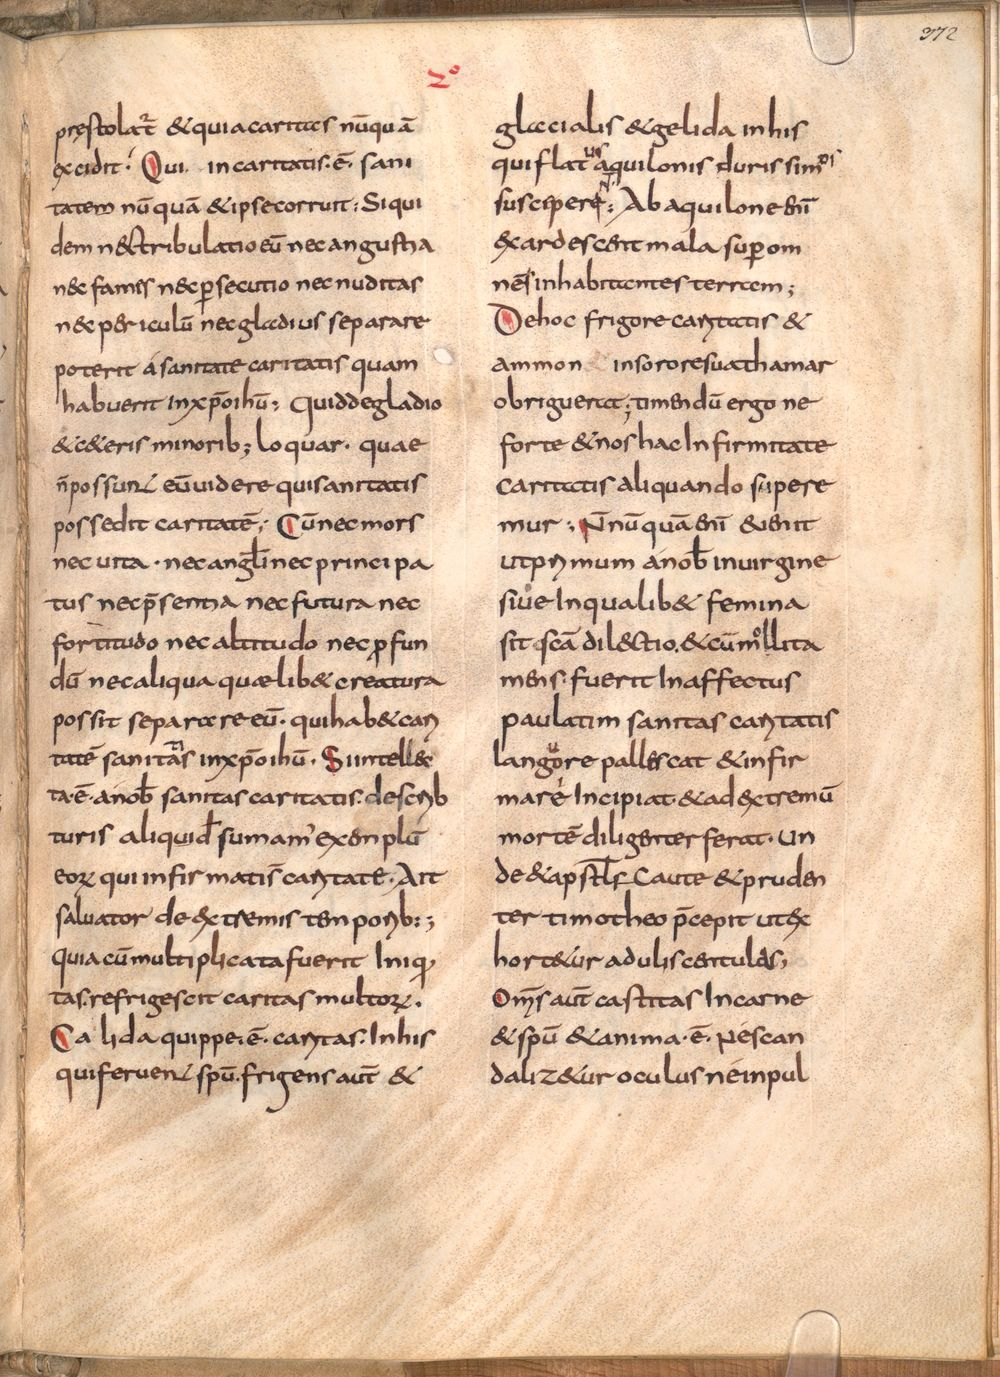 372
2°
pręstolat̄ &quia caritas nūquā
excidit; Qui in caritatis·ē· sani
tatem nūquā &ipse corruit; Siqui
dem n&tribulatio eū nec angustia
nec fames nec p̱secutio nec nuditas
nec periculū nec gladius separare
poterit á sanitate caritatis quam
habuerit inxp̄o ihū; Quid de gladio
&c&eris minorib; loquar· quae
n̄ possunt eū uidere qui sanitatis
possedit caritatē; Cū nec mors
nec uita · nec angłi nec principa
tus nec p̄sentia nec futura nec
fortitudo nec altitudo nec profun
dū nec aliqua quælib& creatura
possit separare eū· qui hab& cari
tatē sanitatis inxp̄o ihū· Si intell&
ta·ē·a nob̄ sanitas caritatis· describ
turis aliquid sumam' exemplū
eorꝝ qui infirmatis caritate· Ait
saluator de extremis temporib:;
quia cū multiplicata fuerit Iniqui
tas· refrigescit caritas multorꝝ·
Calida quippe·ē· caritas· In his
qui feruent spū· frigens aut̄ &
glacialis &gelida in his
qui flatus aquilonis duris sinib;
suscipere; Ab aquilone eni̅
exardescent mala sup̱ om
nēs inhabitantes terram;
De hoc frigore caritatis &
ammon in sorore sua thamar
obriguerat; timendū ergo ne
forte &nos hac Infirmitate
caritatis aliquando supere
mur; N̄ nūquā eni̅ &enit
ut primum a nob̄ in uirgine
siue In qualib& femina
sit sc̄a dil&tio· &cū mollita
mens· fuerit In affectus
paulatim sanitas caritatis
languore pallescat &infir
mare Incipiat· &ad extremū
mortē diligenter ferat· Un
de &apstłs Caute &pruden
ter timotheo p̄cepit ut ex
hort&ur aduliscentulas;
Om̄s aut̄ castitas In carne
&spū &anima·ē· Ne scan
daliz&ur oculus ne inpul